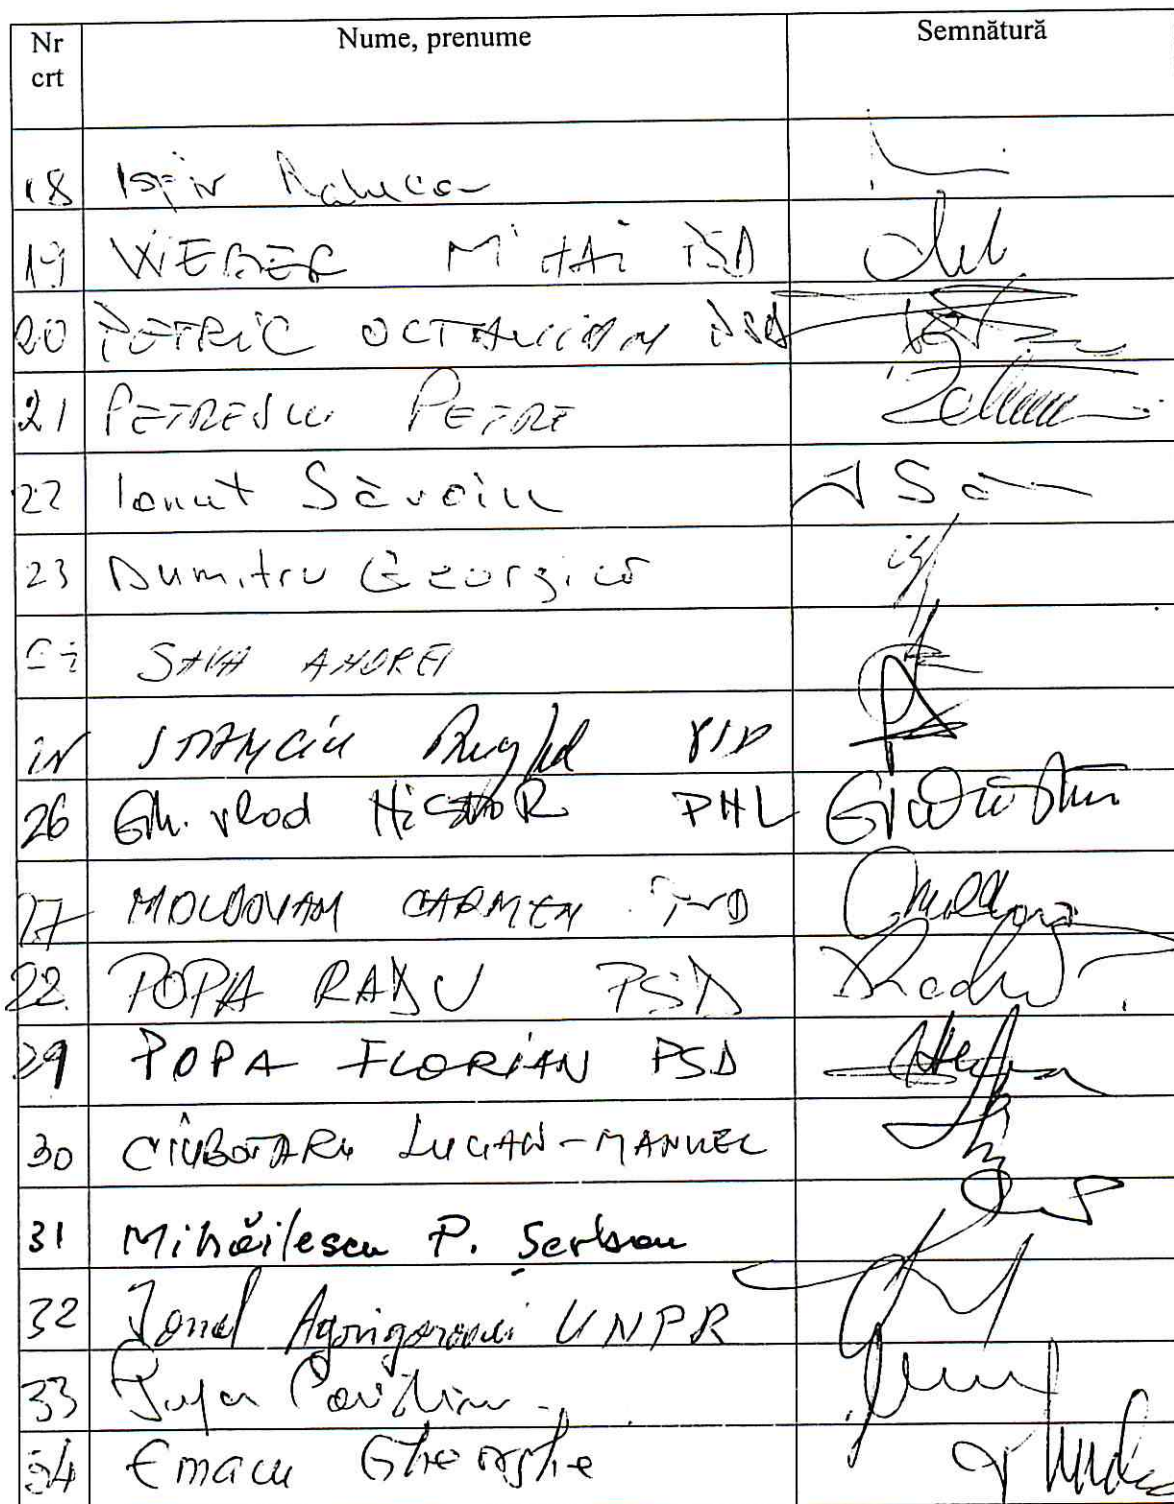 Nr crt Nume, prenume Semnătură
18 Ispir Raluca
19 WEBER MIHAI PSD
20 PETRIC OCTAVIAN PSD
21 PETRESCU PETRE
22 Ionut Săvoiu
23 Dumitru Georgică
SAVA ANDREI
STANCIU PSD
26 Gh. Vlad NISTOR PNL
27 MOLDOVAN CARMEN
28. POPA RADU PSD Radu
29 POPA FLORIAN PSD
30 CIUBOTARU LUCIAN-MANUEL
31 Mihăilescu P. Șerban
32 Ionel Agrigoroaei UNPR
33
34 Emacu Gheorghe